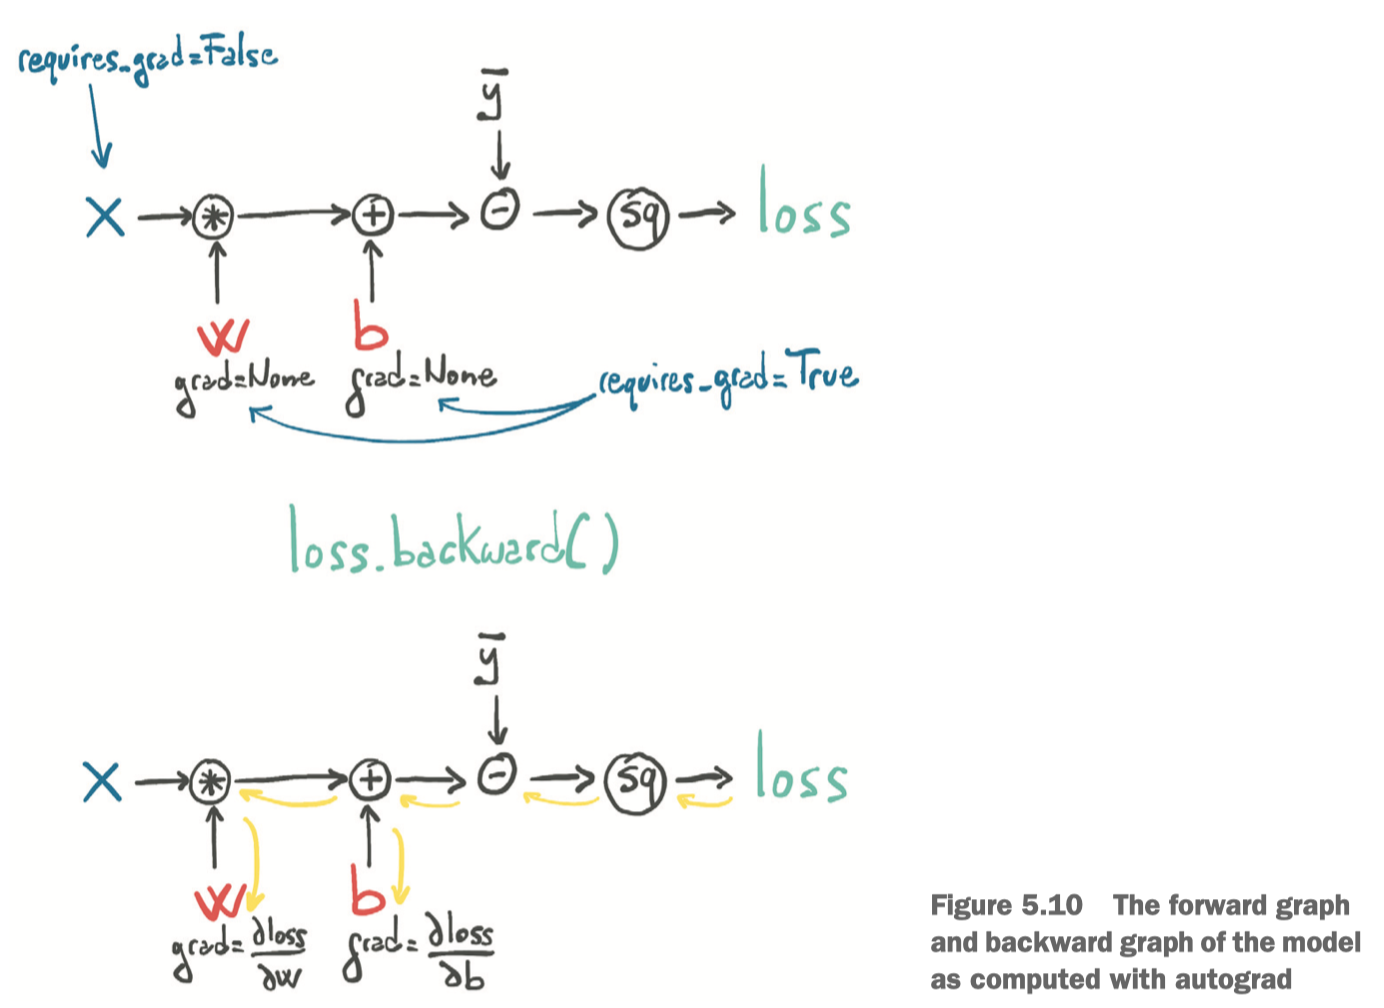 requires_grad=False
ȳ
X * + - sq loss
w b
grad=None grad=None requires_grad=True
loss.backward()
ȳ
X * + - sq loss
w b
grad=∂loss/∂w grad=∂loss/∂b
Figure 5.10 The forward graph
and backward graph of the model
as computed with autograd